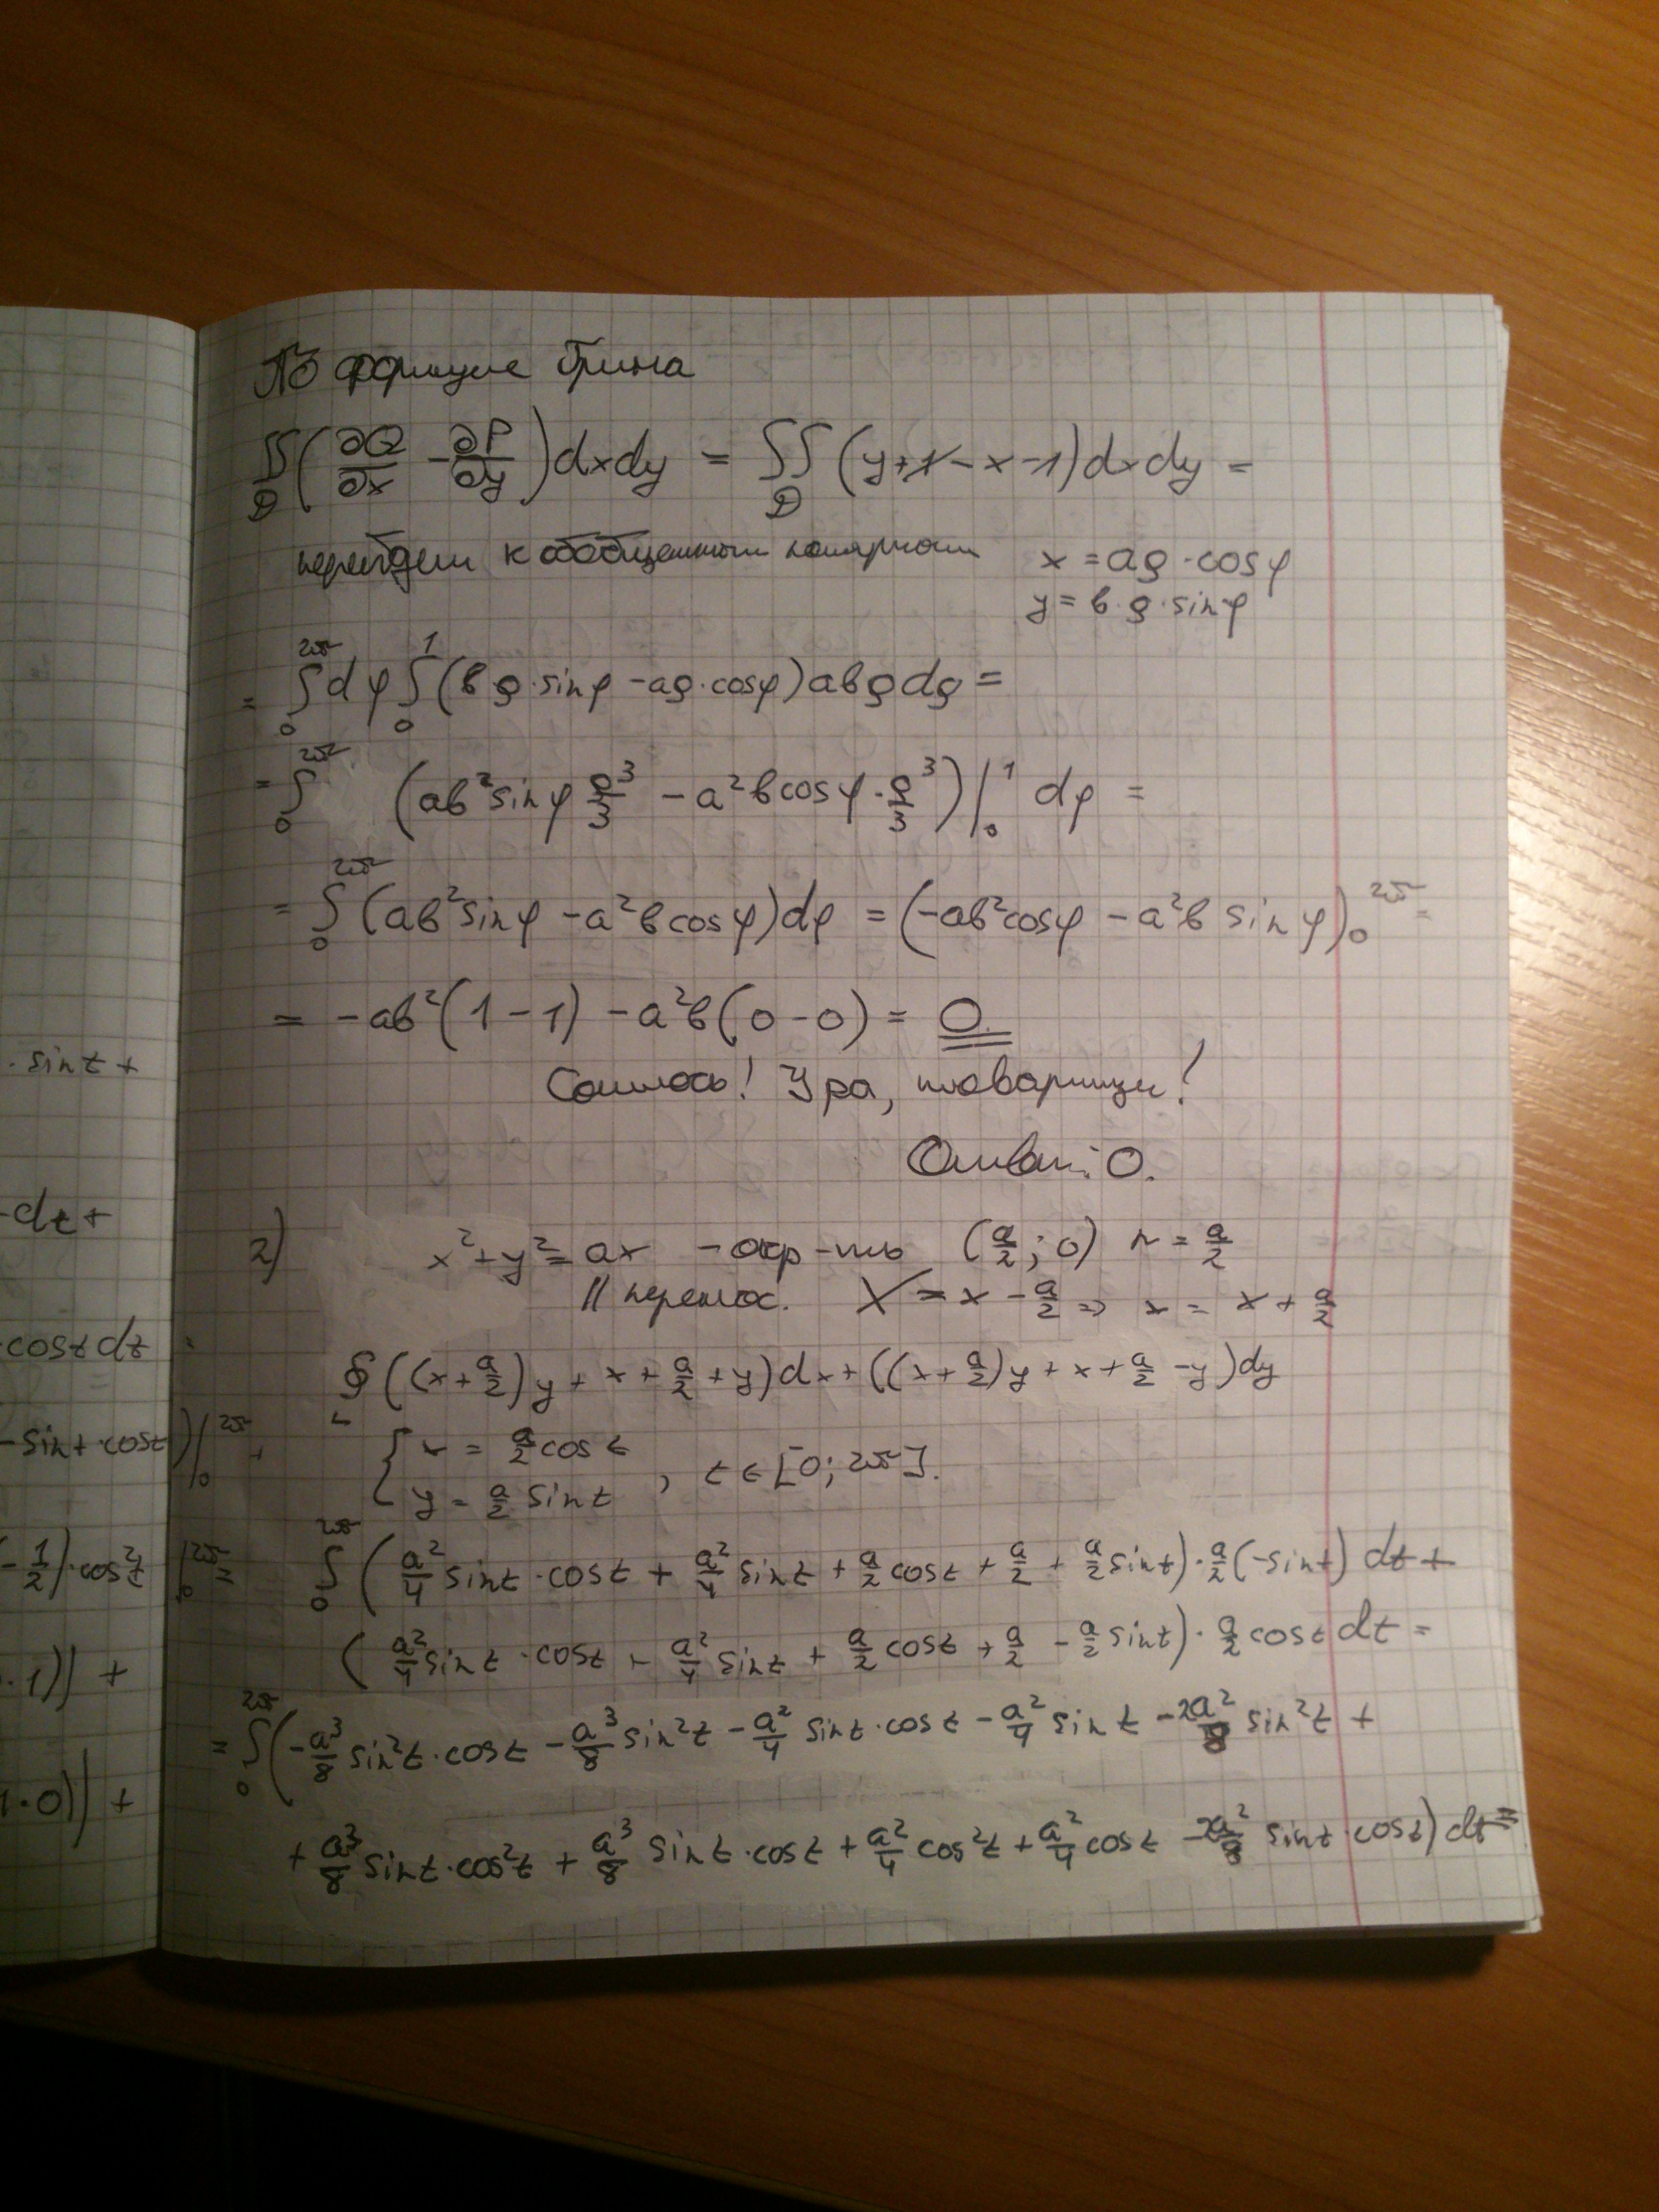 · sint +
- dt +
· cost dt =
- sint · cost)|₀^2π +
(-1/2) · cos²t |₀^2π =
· 1)) +
1 · 0)) +
По формуле Грина
∬_D (∂Q/∂x - ∂P/∂y) dxdy = ∬_D (y+1-x-1) dxdy =
перейдем к обобщенным полярным x = aρ · cosφ
y = b · ρ · sinφ
= ∫₀^2π dφ ∫₀^1 (bρ · sinφ - aρ · cosφ) abρdρ =
= ∫₀^2π (ab² sinφ ρ³/3 - a²b cosφ · ρ³/3)|₀^1 dφ =
= ∫₀^2π (ab² sinφ - a²b cosφ) dφ = (-ab² cosφ - a²b sinφ)₀^2π =
= -ab² (1-1) - a²b (0-0) = 0.
Сошлось! Ура, товарищи!
Ответ: 0.
2) x² + y² = ax - окр-ть (a/2; 0) r = a/2
|| перенос. X = x - a/2 ⇒ x = x + a/2
∮ ((x + a/2) y + x + a/2 + y) dx + ((x + a/2) y + x + a/2 - y) dy
{ x = a/2 cos t
y = a/2 sin t , t ∈ [0; 2π].
∫₀^2π (a²/4 sint · cost + a²/4 sint + a/2 cost + a/2 + a/2 sint) · a/2 (-sint) dt +
(a²/4 sint · cost + a²/4 sint + a/2 cost + a/2 - a/2 sint) · a/2 cost dt =
= ∫₀^2π (-a³/8 sin²t · cost - a³/8 sin²t - a²/4 sint · cost - a²/4 sint - a²/4 sin²t +
+ a³/8 sint · cos²t + a³/8 sint · cost + a²/4 cos²t + a²/4 cost - a²/4 sint · cost) dt =